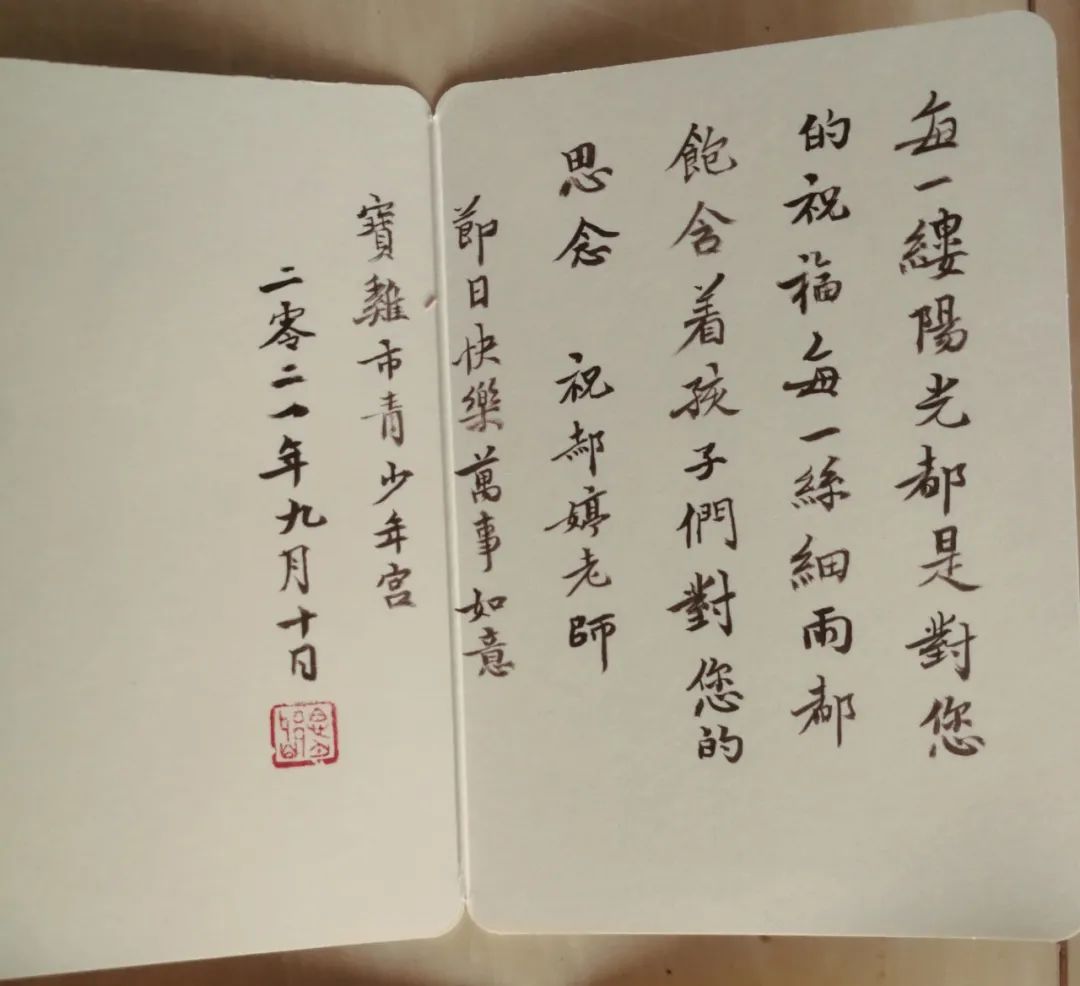 每一縷陽光都是對您
的祝福每一絲細雨都
飽含着孩子們對您的
思念 祝郝婷老師
節日快樂萬事如意
寶雞市青少年宮
二零二一年九月十日